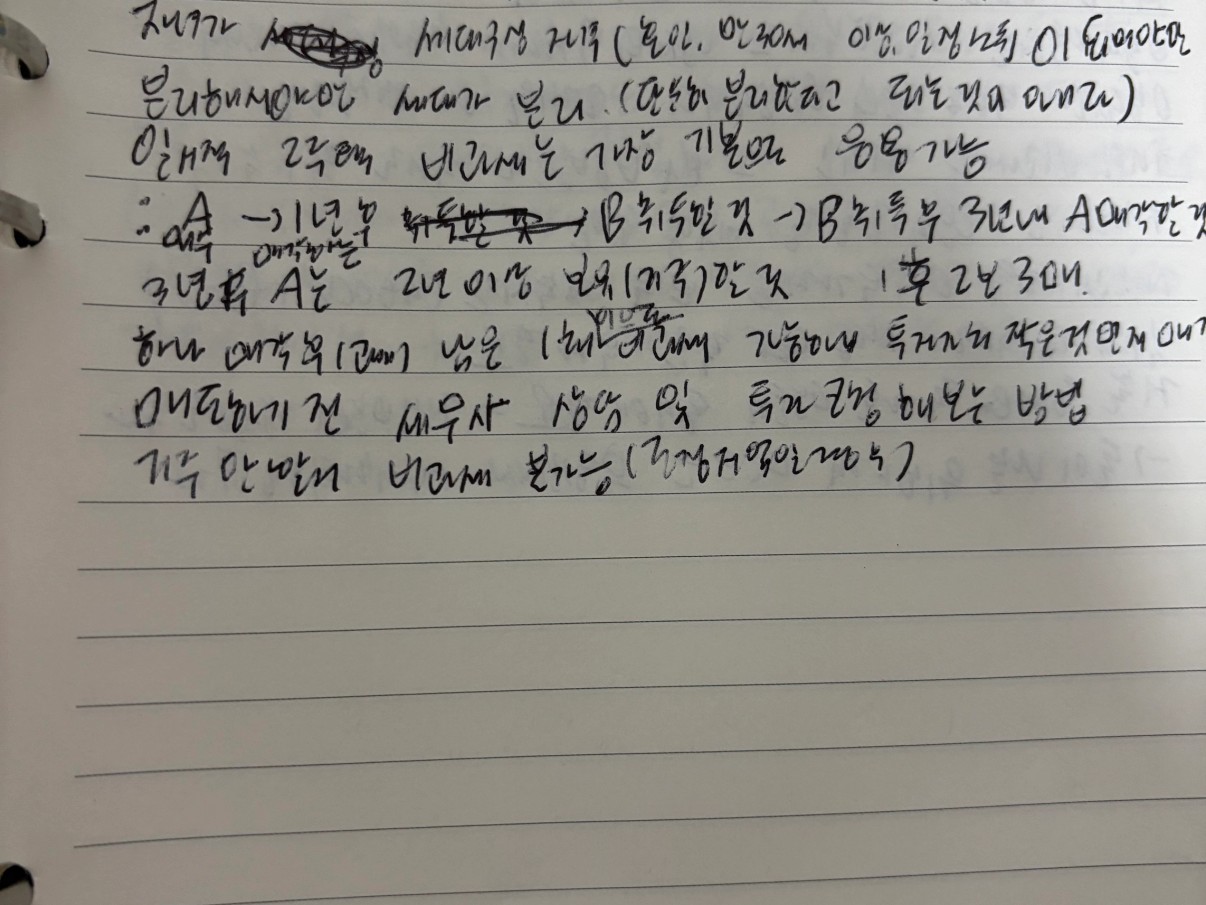 자녀가 세대구성 자격 (혼인, 만 30세 이상, 일정소득)이 되어야만
분리해서야만 세대가 분리. (단순히 분리했다고 되는 것이 아니라)
일시적 2주택 비과세는 가장 기본으로 응용 가능
∴ A → 1년 후 B 취득할 것 → B 취득 후 3년내 A 매각할 것
매각하는
3년후 A는 2년 이상 보유(거주)할 것 1후 2보 3매.
하나 매각 후 (과세) 남은 1채 비과세 가능하니 투자자의 작은것 먼저
매도하기 전 세무사 상담 및 투자 코칭 해보는 방법
거주 안 말지 비과세 불가능 (조정지역일 경우)